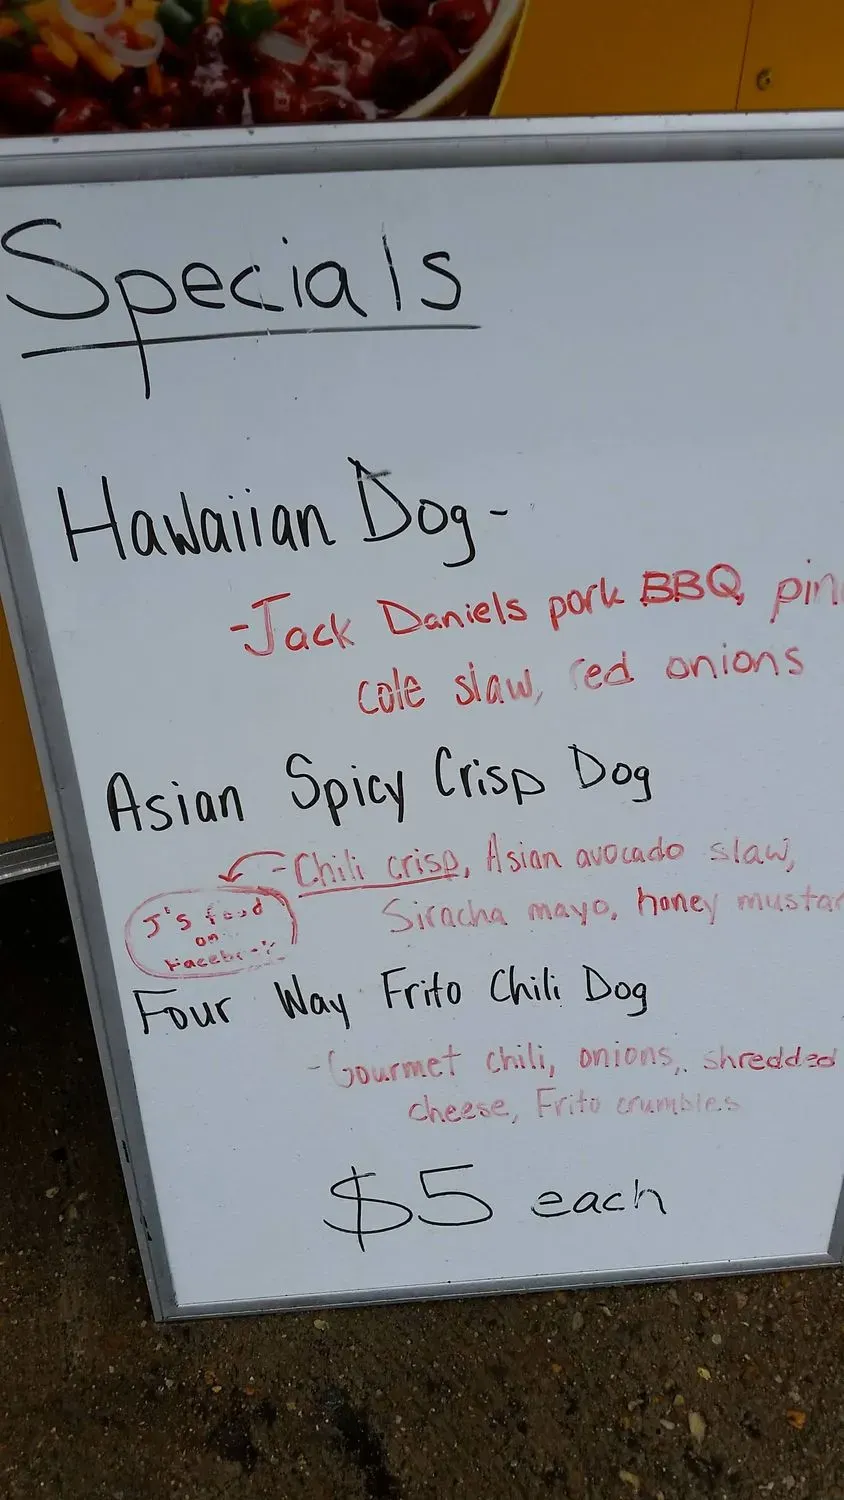 Specials
Hawaiian Dog-
-Jack Daniels pork BBQ, pin
cole slaw, red onions
Asian Spicy Crisp Dog
-Chili crisp, Asian avocado slaw,
Siracha mayo, honey mustar
J's food
on
Facebook
Four Way Frito Chili Dog
-Gourmet chili, onions, shredded
cheese, Frito crumbles
$5 each